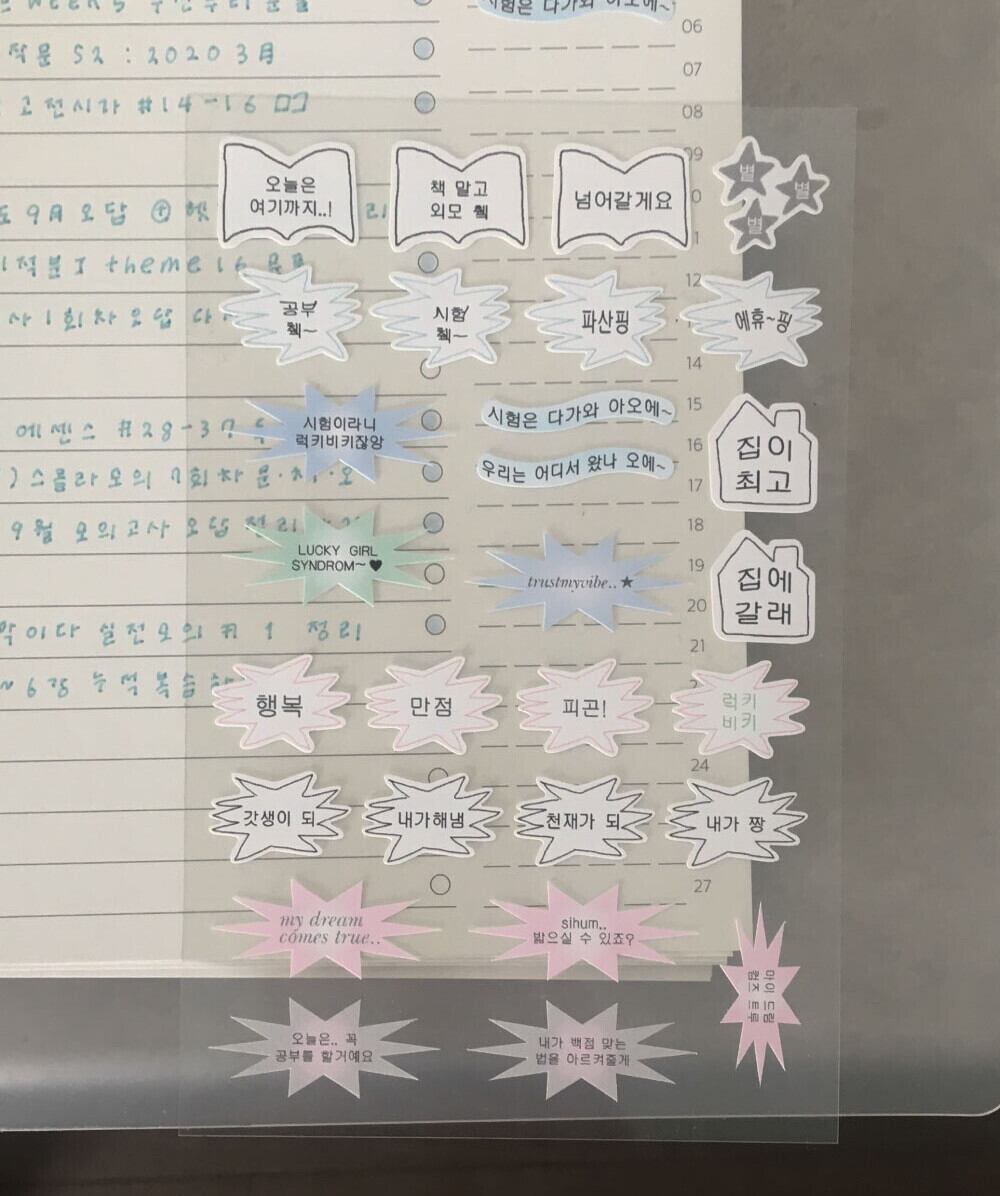 시험은 다가와 아오에~
작문 S2 : 2020 3月
고전시가 #14-16
9月 오답
theme 16
사 1회차 오답
에센스 #28-3
스플라 모의 1회차 문
9월 모의고사 오답 정리
이다 실전모의 #1 정리
6강 누적 복습
06
07
08
09
12
14
15
16
17
18
19
20
21
24
27
오늘은
여기까지..!
책 말고
외모 췤
넘어갈게요
별
별
별
공부
췤~
시험
췤~
파산핑
에휴~핑
시험이라니
럭키비키잖앙
시험은 다가와 아오에~
우리는 어디서 왔나 오에~
집이
최고
LUCKY GIRL
SYNDROM~♥
trustmyvibe..★
집에
갈래
행복
만점
피곤!
럭키
비키
갓생이 되
내가해냄
천재가 되
내가 짱
my dream
comes true..
sihum..
밟으실 수 있죠?
마이 드림
컴즈 트루
오늘은.. 꼭
공부를 할거예요
내가 백점 맞는
법을 아르켜줄게